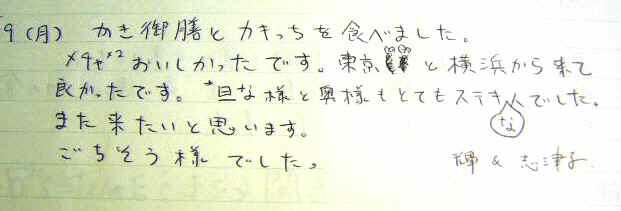 9(月) かき御膳とカキっちを食べました。
メチャ×2 おいしかったです。東京と横浜から来て
良かったです。旦な様と奥様もとてもステキな人でした。
また来たいと思います。
ごちそう様でした。
輝 & 志津子